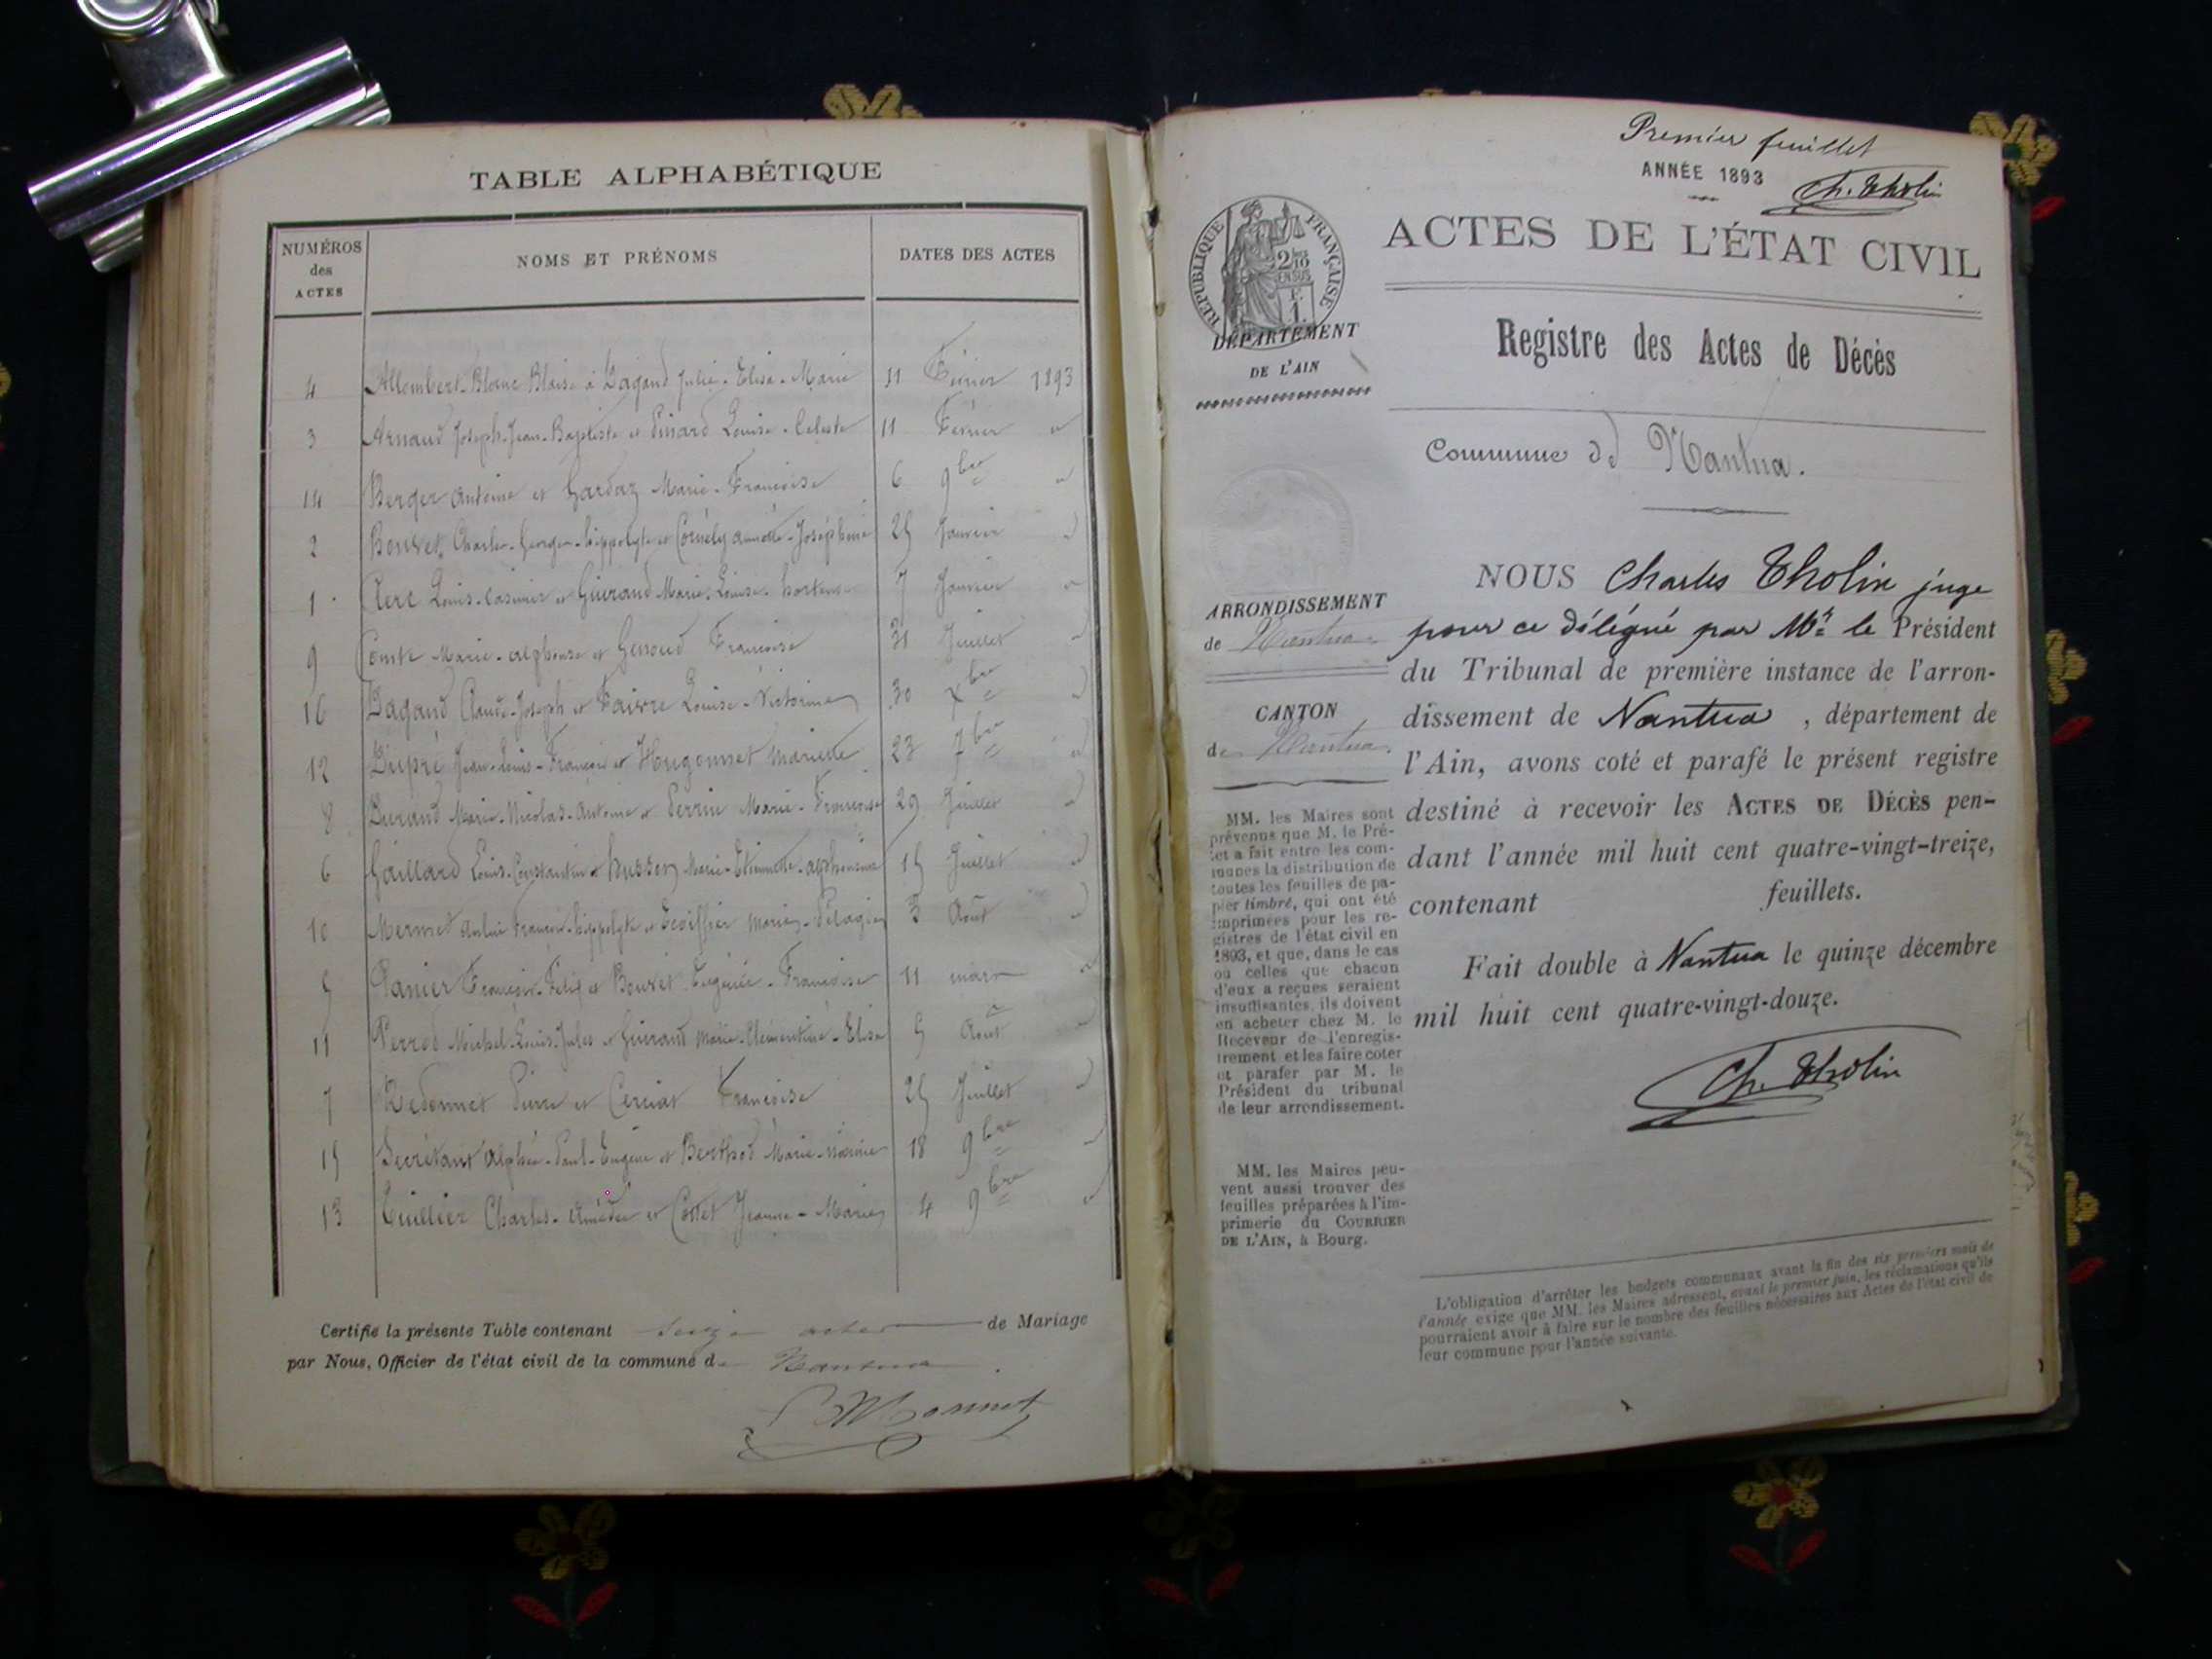 TABLE ALPHABÉTIQUE
NUMÉROS des ACTES
NOMS ET PRÉNOMS
DATES DES ACTES
4 Allombert-Blanc Blaise à Dagand Julie-Elisa-Marie 11 Février 1893
3 Arnaud Joseph-Jean-Baptiste et Pinard Louise-Céleste 11 Février "
14 Berger Antoine et Gardaz Marie-Françoise 6 9bre "
2 Bouvet Charles-Georges-hippolyte et Cornély Joséphine 25 Janvier "
1 Clerc Louis-Casimir et Guiraud Marie-Louise-hortense 7 Janvier "
9 Comte Marie-alphonse et Genoud Françoise 31 Juillet "
16 Dagand Claude-Joseph et Faivre Louise-Victorine 30 Xbre "
12 Dupré Jean-Louis-François et Hugonnet Mariette 23 7bre "
8 Durand Marie-Nicolas-Antoine et Perrin Marie-Françoise 29 Juillet "
6 Gaillard Louis-Constantin et husson Marie-Etiennette-alphonsine 15 Juillet "
10 Mermet François-hippolyte et Ecoiffier Marie-Pélagie 3 Août "
5 Panier François-Félix et Bouvet Eugénie-Françoise 11 mars "
11 Perrod Michel-Louis-Jules et Guiraud Marie-Clémentine-Elisa 5 Août "
7 Redonnet Pierre et Cerciat Françoise 25 Juillet "
15 Secrétant Alphée-Paul-Eugène et Berthod Marie 18 9bre "
13 Tuillier Charles-Amédée et Cottet Jeanne-Marie 4 9bre "
Certifié la présente Table contenant seize actes de Mariage
par Nous, Officier de l'état civil de la commune de Nantua.
Premier feuillet
ANNÉE 1893
Ch. Tholin
RÉPUBLIQUE FRANÇAISE
2/10 EN SUS
F. 1.
ACTES DE L'ÉTAT CIVIL
DÉPARTEMENT
DE L'AIN
Registre des Actes de Décès
Commune de Nantua.
ARRONDISSEMENT
de Nantua
CANTON
de Nantua.
MM. les Maires sont
prévenus que M. le Pré-
fet a fait entre les com-
munes la distribution de
toutes les feuilles de pa-
pier timbré, qui ont été
imprimées pour les re-
gistres de l'état civil en
1893, et que, dans le cas
où celles que chacun
d'eux a reçues seraient
insuffisantes, ils doivent
en acheter chez M. le
Receveur de l'enregis-
trement et les faire coter
et parafer par M. le
Président du tribunal
de leur arrondissement.
MM. les Maires peu-
vent aussi trouver des
feuilles préparées à l'im-
primerie du COURRIER
DE L'AIN, à Bourg.
NOUS Charles Tholin juge
pour ce délégué par Mr le Président
du Tribunal de première instance de l'arron-
dissement de Nantua, département de
l'Ain, avons coté et parafé le présent registre
destiné à recevoir les ACTES DE DÉCÈS pen-
dant l'année mil huit cent quatre-vingt-treize,
contenant feuillets.
Fait double à Nantua le quinze décembre
mil huit cent quatre-vingt-douze.
Ch. Tholin
L'obligation d'arrêter les budgets communaux avant la fin des six premiers mois de
l'année exige que MM. les Maires adressent, avant le premier juin, les réclamations qu'ils
pourraient avoir à faire sur le nombre des feuilles nécessaires aux Actes de l'état civil de
leur commune pour l'année suivante.